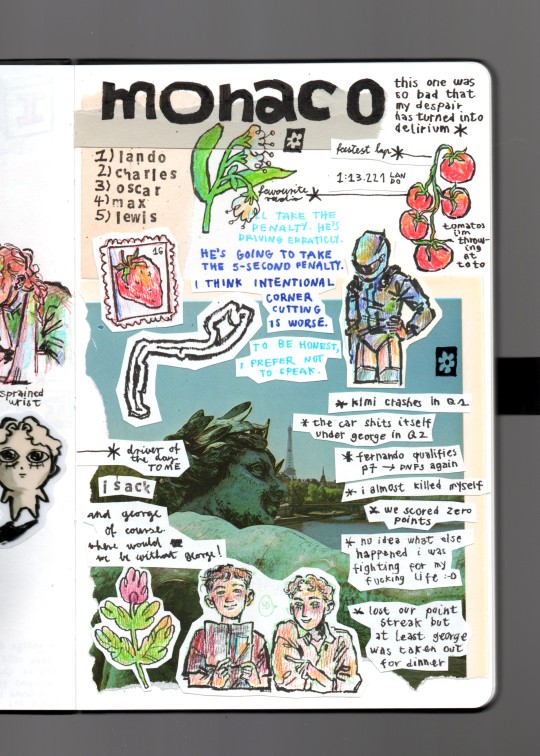 monaco
this one was
so bad that
my despair
has turned into
delirium *
1) lando
2) charles
3) oscar
4) max
5) lewis
fastest lap *
1:13.221 LAN
DO
favourite
radio *
tomatos
i'm
throw-
ing
at
toto
16
I'LL TAKE THE
PENALTY. HE'S
DRIVING ERRATICLY.
HE'S GOING TO TAKE
THE 5-SECOND PENALTY.
I THINK INTENTIONAL
CORNER
CUTTING
IS WORSE.
TO BE HONEST,
I PREFER NOT
TO SPEAK.
* kimi crashes in Q1
* the car shits itself
under george in Q2
* fernando qualifies
p7 → DNFs again
* i almost killed myself
* we scored zero
points
* no idea what else
happened i was
fighting for my
fucking life :-D
* lost our point
streak but
at least george
was taken out
for dinner
* driver of
the day
TO ME
isack
and george
of course.
where would
we be without george!
sprained
wrist